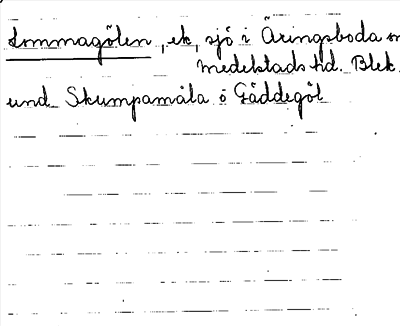 Lommagölen, ek, sjö i Äringsboda sn
Medelstads hd. Blek.
und Skumpamåla o Gäddegöl